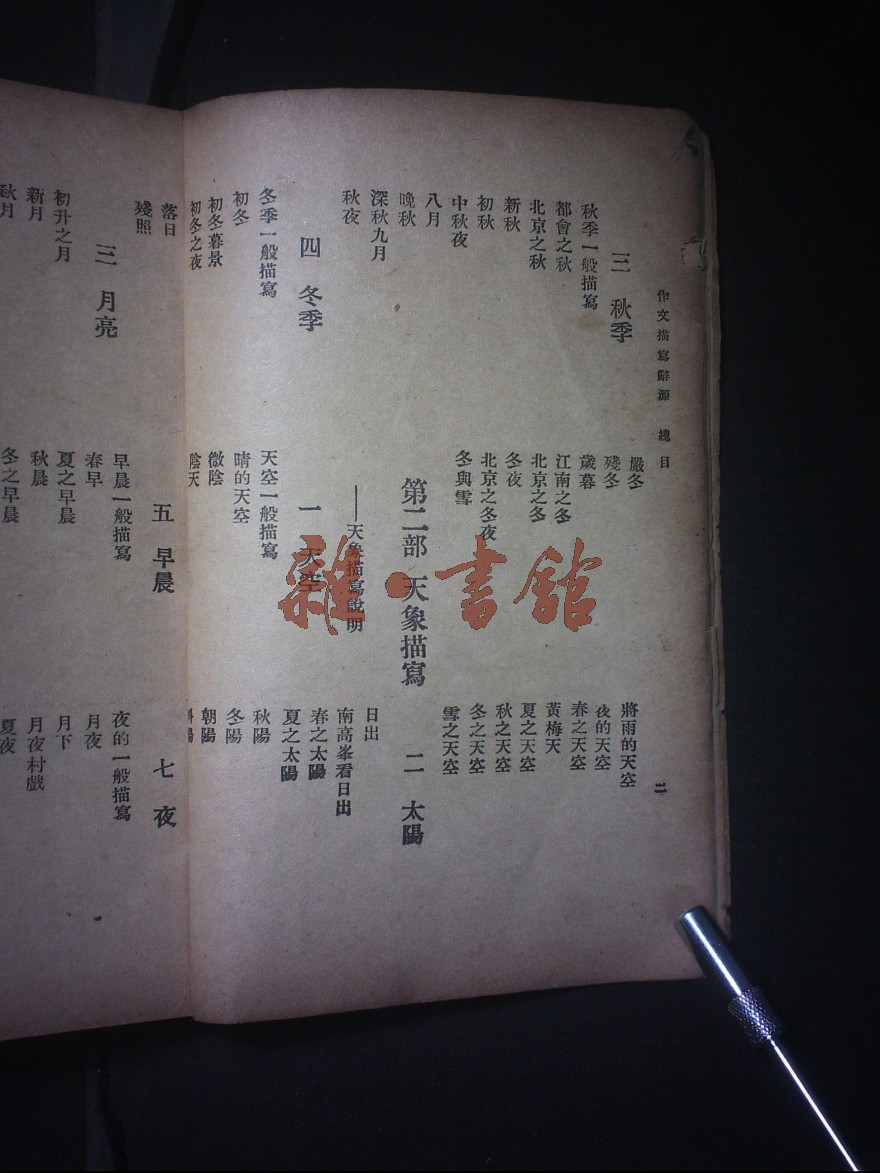 作文描寫辭源 總目
二
三 秋季
秋季一般描寫
都會之秋
北京之秋
新秋
初秋
中秋夜
八月
晚秋
深秋九月
秋夜
四 冬季
冬季一般描寫
初冬
初冬暮景
初冬之夜
嚴冬
殘冬
歲暮
江南之冬
北京之冬
冬夜
北京之冬夜
冬與雪
第二部 天象描寫
——天象描寫說明
一 天空
天空一般描寫
晴的天空
微陰
陰天
將雨的天空
夜的天空
春之天空
黃梅天
夏之天空
秋之天空
冬之天空
雪之天空
二 太陽
日出
南高峯看日出
春之太陽
夏之太陽
秋陽
冬陽
朝陽
斜陽
落日
殘照
三 月亮
初升之月
新月
秋月
五 早晨
早晨一般描寫
春早
夏之早晨
秋晨
冬之早晨
七 夜
夜的一般描寫
月夜
月下
月夜村戲
夏夜
雜·書館